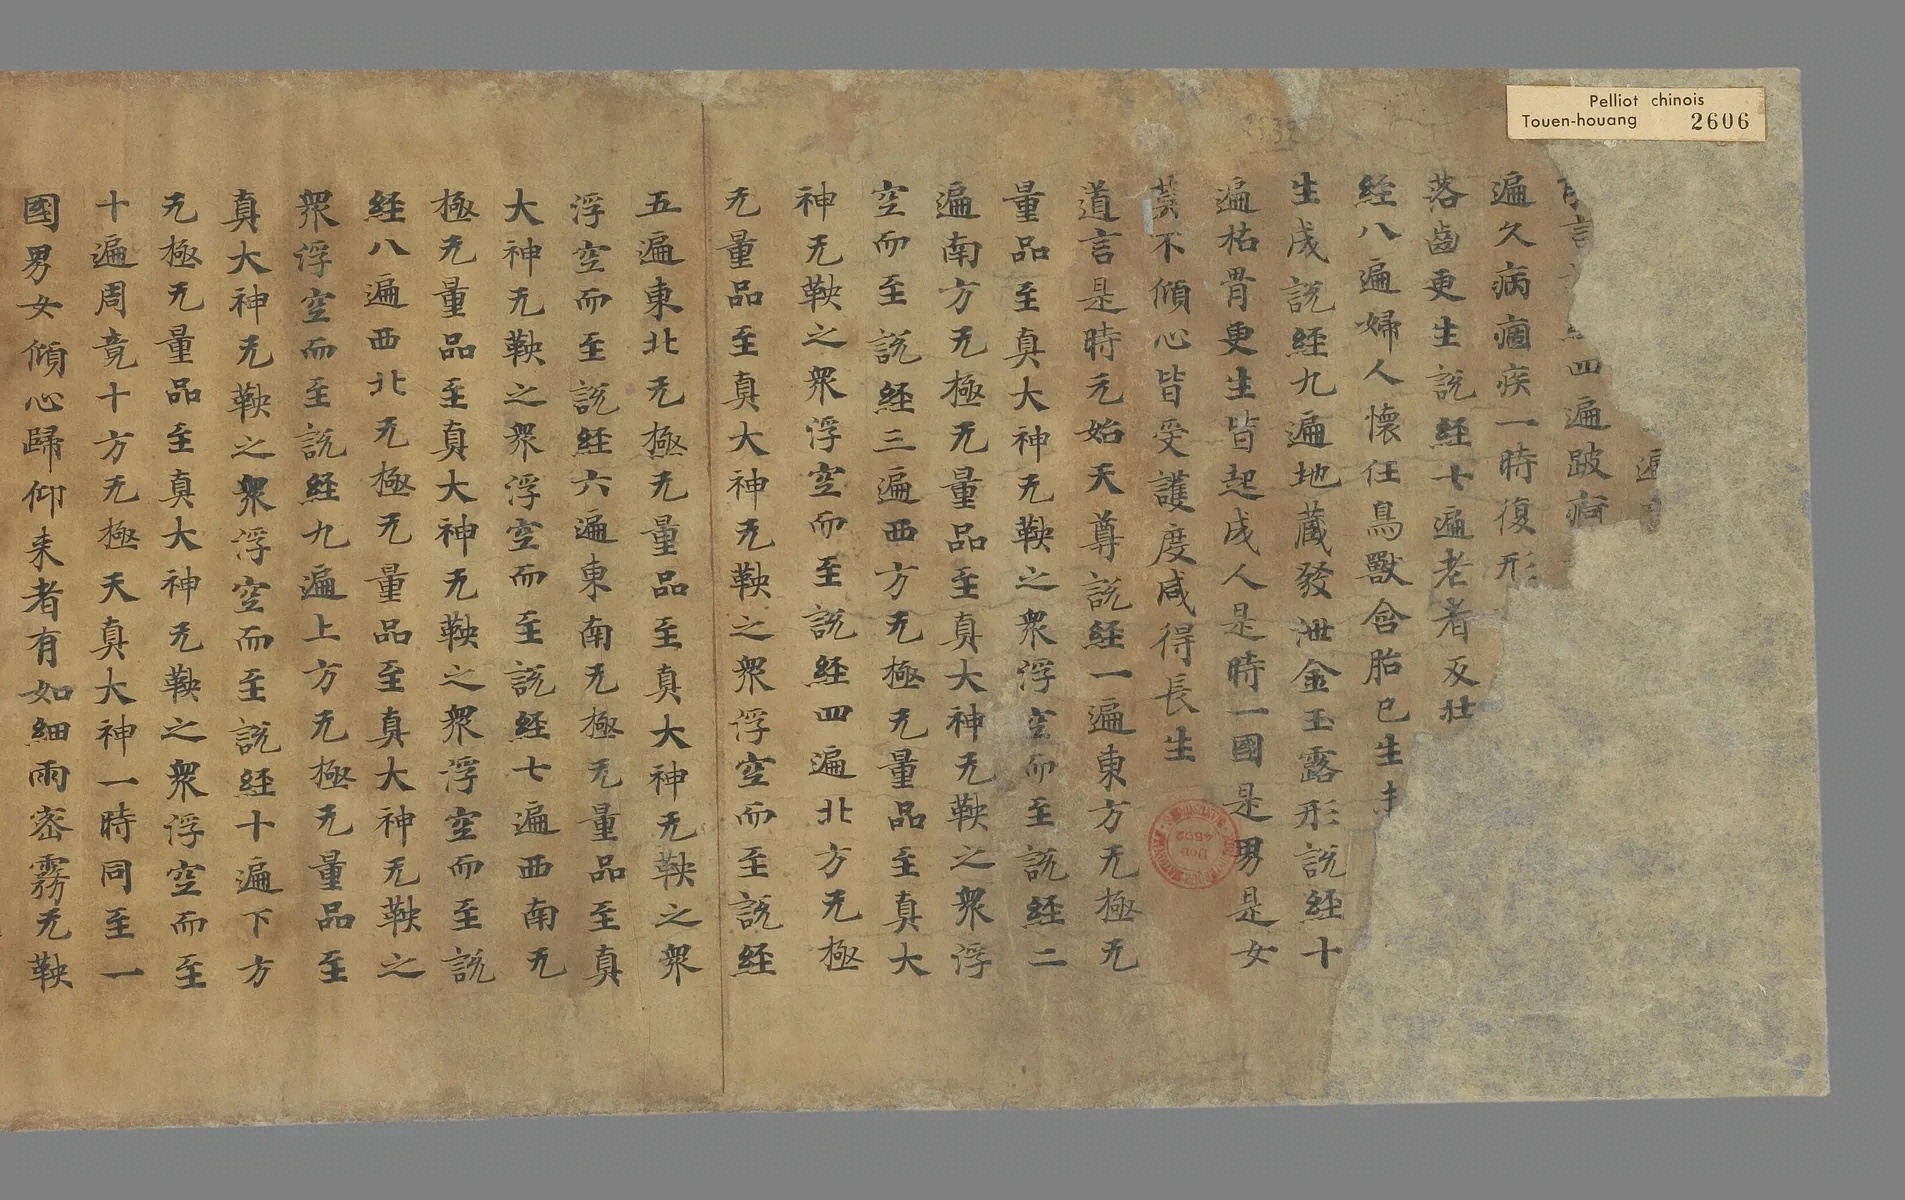 Pelliot chinois
Touen-houang 2606
遍
言 四遍跛痾
遍久病痼疾一時復形
落齒更生說經七遍老者反壯
經八遍婦人懷任鳥獸含胎已生
生成說經九遍地藏發泄金玉露形說經十
遍枯骨更生皆起成人是時一國是男是女
莫不傾心皆受護度咸得長生
道言是時元始天尊說經一遍東方无極无
量品至真大神无鞅之衆浮空而至說經二
遍南方无極无量品至真大神无鞅之衆浮
空而至說經三遍西方无極无量品至真大
神无鞅之衆浮空而至說經四遍北方无極
无量品至真大神无鞅之衆浮空而至說經
五遍東北无極无量品至真大神无鞅之衆
浮空而至說經六遍東南无極无量品至真
大神无鞅之衆浮空而至說經七遍西南无
極无量品至真大神无鞅之衆浮空而至說
經八遍西北无極无量品至真大神无鞅之
衆浮空而至說經九遍上方无極无量品至
真大神无鞅之衆浮空而至說經十遍下方
无極无量品至真大神无鞅之衆浮空而至
十遍周竟十方无極天真大神一時同至一
國男女傾心歸仰来者有如細雨密霧无鞅